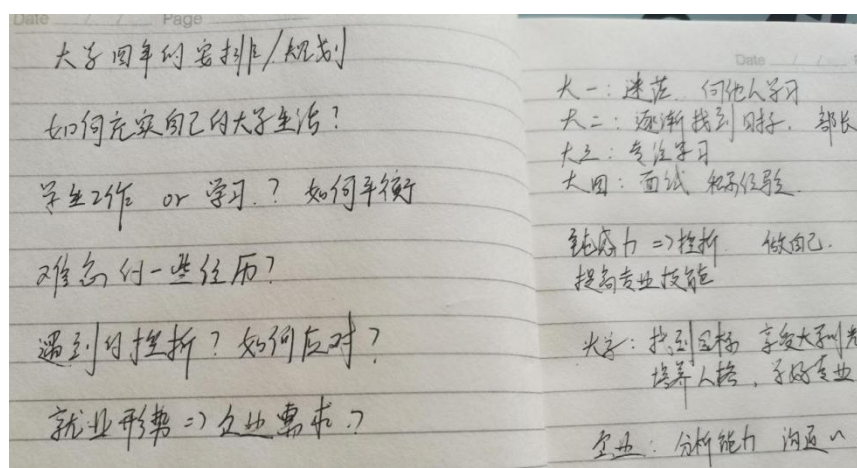 Date / / Page
大学四年的安排/规划
如何充实自己的大学生活?
学生工作 or 学习.? 如何平衡
难忘的一些经历?
遇到的挫折? 如何应对?
就业形势 => 企业需求.?
Date / /
大一: 迷茫. 向他人学习
大二: 逐渐找到目标. 部长
大三: 专注学习
大四: 面试 积累经验.
钝感力 => 挫折 做自己.
提高专业技能
大学: 找到目标 享受大学时光
培养人格, 学好专业
企业: 分析能力 沟通